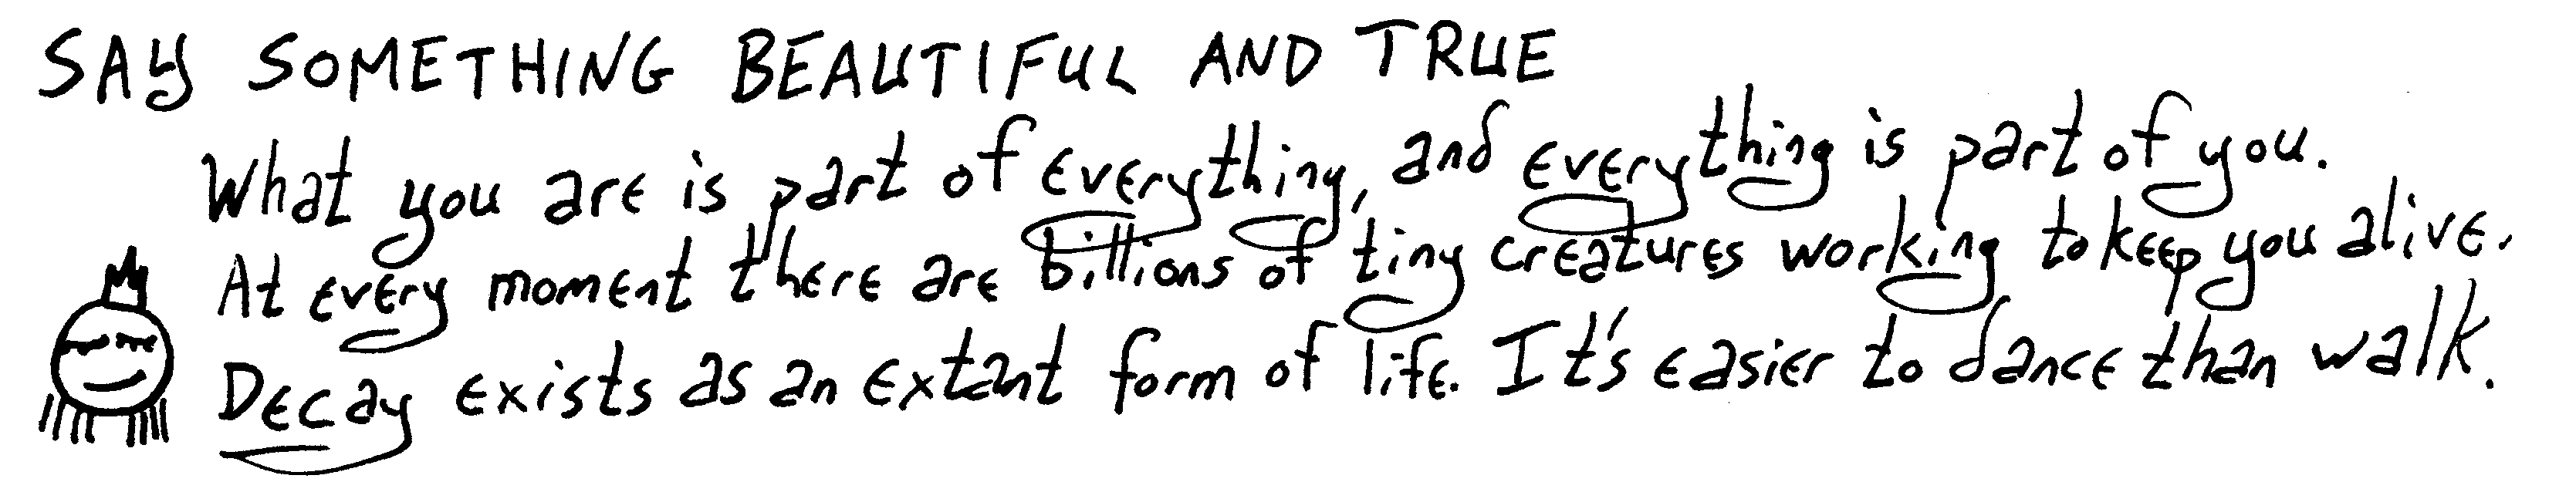 SAY SOMETHING BEAUTIFUL AND TRUE
What you are is part of everything, and everything is part of you.
At every moment there are billions of tiny creatures working to keep you alive.
Decay exists as an extant form of life. It's easier to dance than walk.